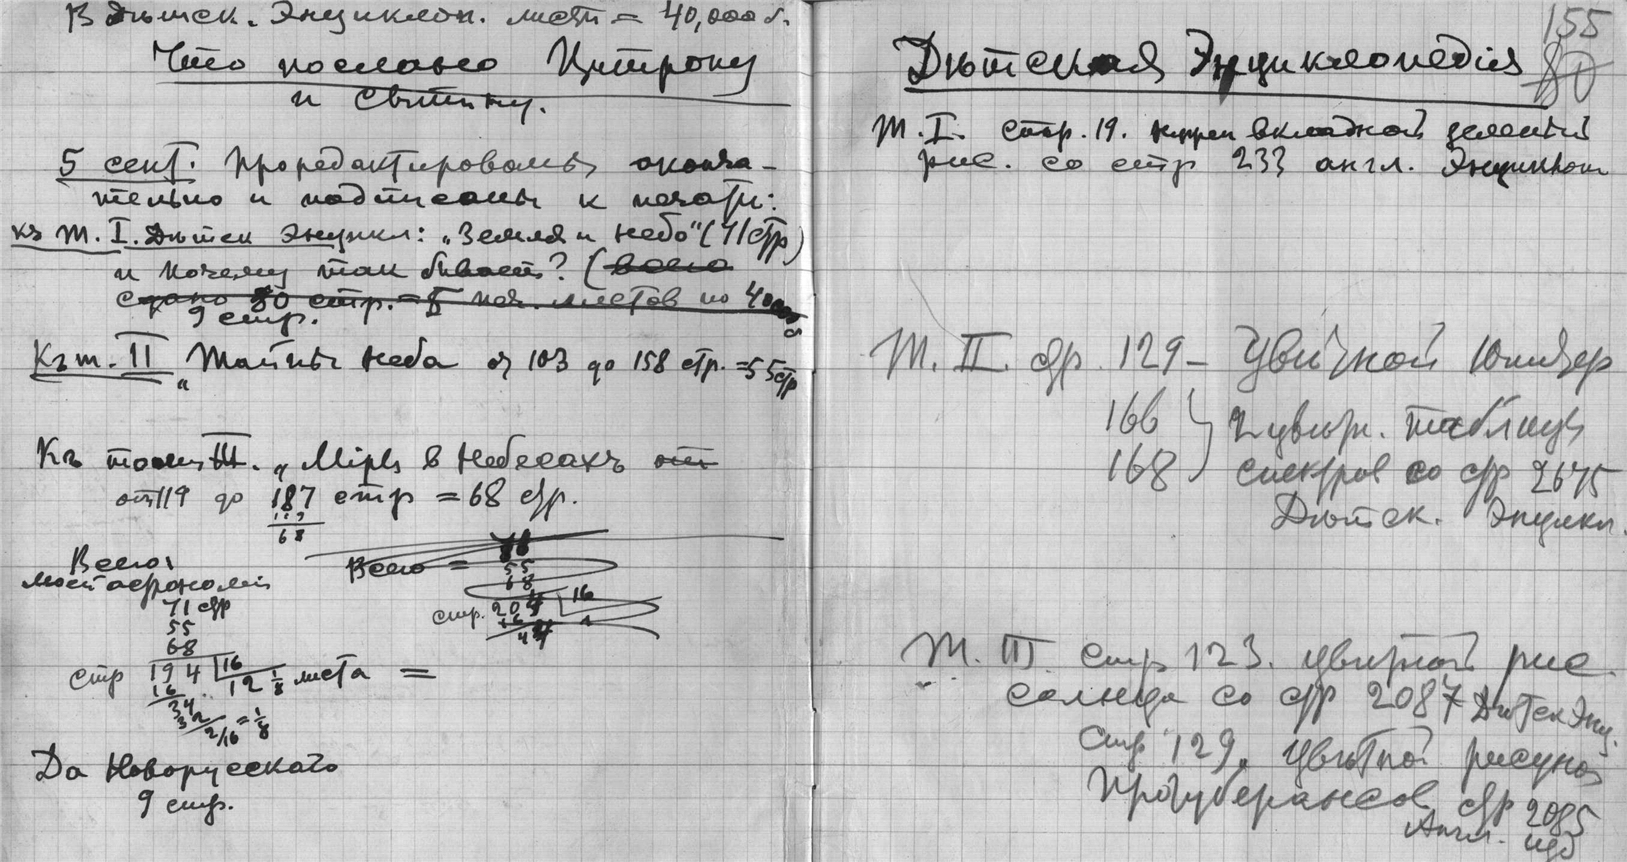 В Дѣтск. Энциклоп. листъ = 40,000 б.
Что послано Цитрону
и Сытину.
5 сент. Проредактированы оконча-
тельно и подписаны к печати:
къ Т. I. Дѣтск Энцикл: „Земля и небо" (71 стр)
и Почему так бывает? (всего
сдано 80 стр. = 5 печ. листов по 40000 б
9 стр.
Къ т. II „Тайны неба от 103 до 158 стр. = 55 стр
Къ тому III. „Міры в небесахъ от
от 119 до 187 стр = 68 стр.
119
68
Всего
моей астрономіи
71 стр
55
68
стр 194 | 16
16 12 1/8 листа =
34
32
2/16 = 1/8
Всего =
55
68
стр. 204 | 16
16
44
Да Новорусскаго
9 стр.
155
80
Дѣтская Энциклопедія
Т. I. Стр. 19. вкладной
рис. со стр 233 англ. Энциклоп
Т. II. стр. 129 – Цвѣтной Юпитер
166
168
2 цвѣтн. таблицы
спектров со стр 2675
Дѣтск. Энцикл.
Т. III. стр 123. цвѣтной рис.
солнца со стр 2087 Дѣтск Энц.
Стр 129. Цвѣтной рисунок
Протуберансов, стр 2085
Англ. изд